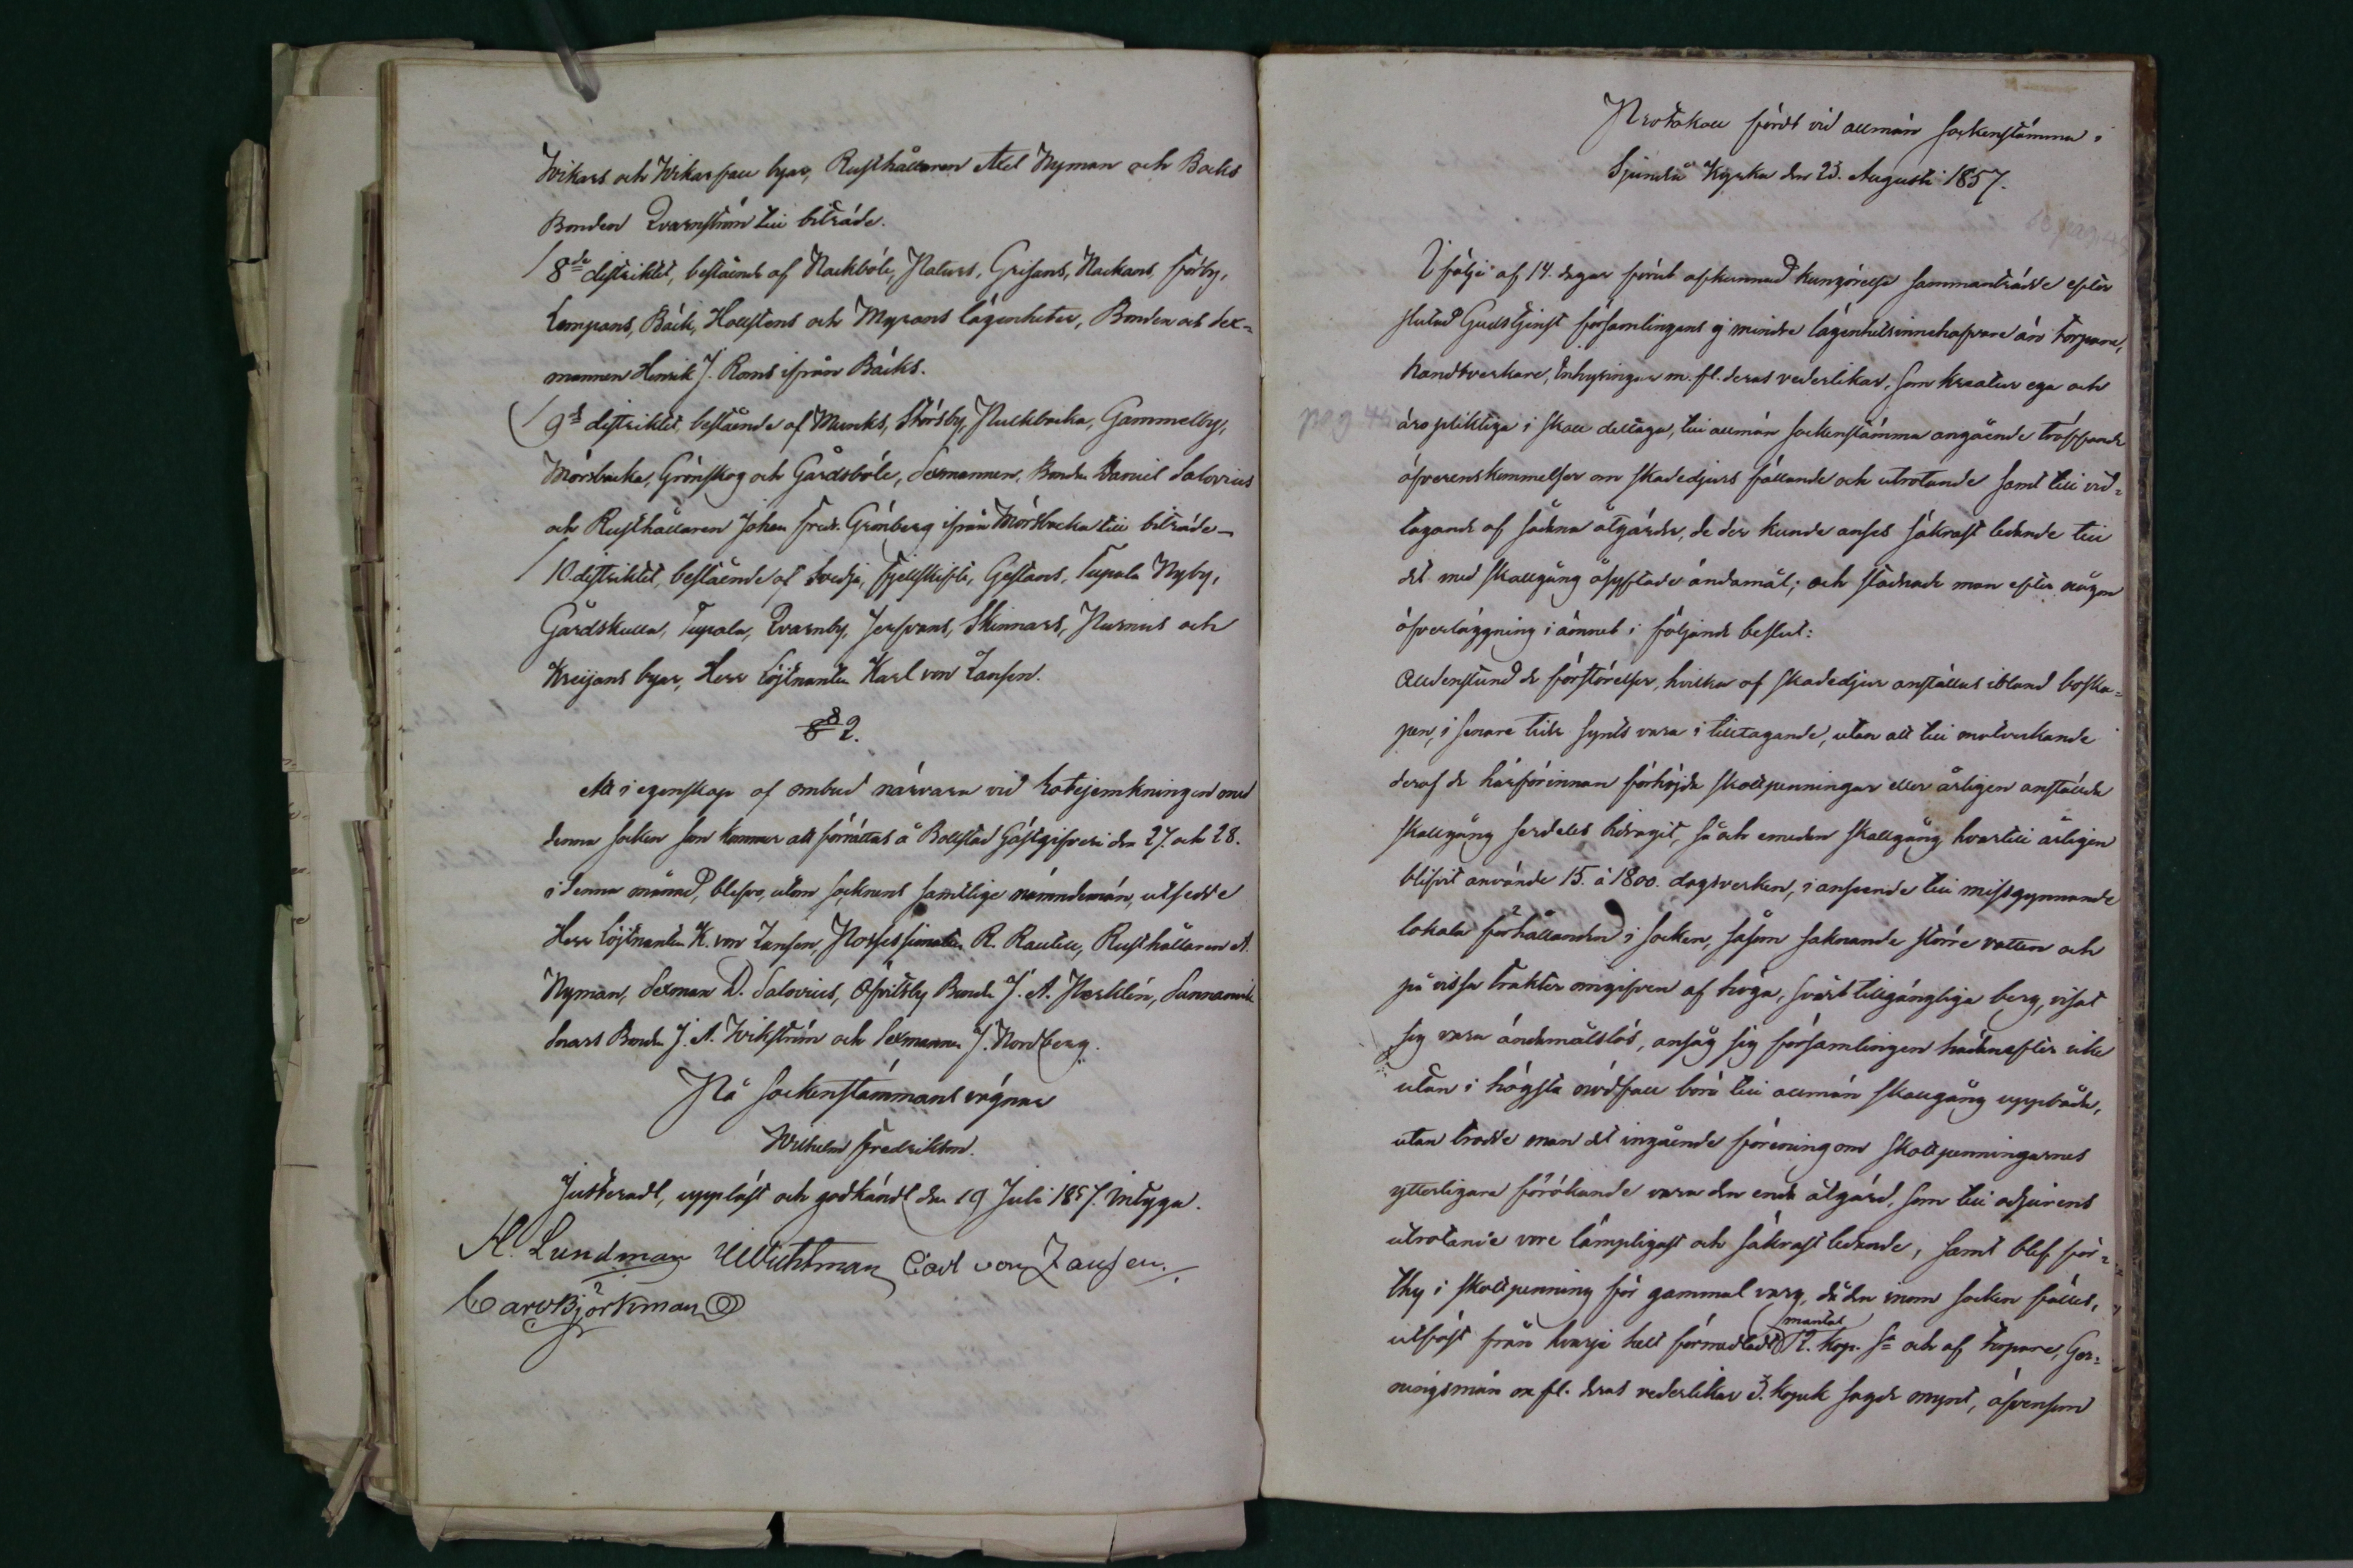 Wikars och Wikarsfall byar, Rusthållaren Axel Nyman och Backs
Bonden Qvarnström till biträde.
8de distriktet, bestående af Nackböle, Paturs, Grisans, Nackans, Förby,
Lempans, Bäck, Hollstens och Myrans lägenheter, Bonden och Sex-
mannen Henrik J. Roms ifrån Bäcks.
9de distriktet, bestående af Munks, Störsby, Purkbacka, Gammelby,
Mörsbacka, Grönskog och Gårdsböle, Sexmannen, Bonden Daniel Salovius
och Rusthållaren Johan Fredr. Grönberg ifrån Mörsbacka till biträde
10. distriktet, bestående af Svedja, Fjellskifte, Gestans, Tupala Nyby,
Gårdskulla, Tupala, Qvarnby, Jerfvans, Skinnars, Purnus och
Kreijans byar, Herr Löjtnanten Karl von Zansen.
§ 2.
Att i egenskap af ombud närvara vid Rotejemkningen med
denna socken som kommer att förrättas å Bollstad Gästgifveri den 27. och 28.
i denna månad, blefvo, utom socknens samtlige nämndemän, utsedde
Herr Löjtnanten K. von Zansen, Possessionaten R. Rautell, Rusthållaren A.
Nyman, Sexman D. Salovius, Öfvitsby Bonde J. A. Norklin, Sunnanvik
Snars Bonden J. A. Wikström och Sexmannen J. Nordberg.
På Sockenstämmans vägnar
Wilhelm Fredrikson.
Justeradt, uppläst och godkändt den 19 Juli 1857. intyga.
A. Lundman Wichtman Carl von Zansen.
Carl Björkman
Protokoll fördt vid allmän sockenstämma i
Sjundeå Kyrka den 23. Augusti 1857.
I följe af 14. dagar förut afkunnad kungörelse sammanträdde efter
slutad Gudstjenst församlingens ej mindre lägenhetsinnehafvare än torpare,
handtverkare, Inhysingar m. fl. deras vederlikar, som kreatur ega och
pag 45
äro pliktiga i skall deltaga, till allmän sockenstämma angående träffande
öfverenskommelser om skadedjurs fällande och utrotande samt till vid-
tagande af sådana åtgärder, de der kunde anses säkrast ledande till
det med skallgång åsyftade ändamål; och stadnade man efter någon
öfverläggning i ämnet i följande beslut:
Alldenstund de förstörelser, hvilka af skadedjur anställas ibland boska-
pen, i senare tider synts vara i tilltagande, utan att till motverkande
deraf de härförinnan förhöjda skottpenningar eller årligen anställda
skallgång serdeles bidragit, så och emedan skallgång hvartill årligen
blifvit använde 15. à 1800. dagsverken, i anseende till missgynnande
lokala förhållanden i socken, såsom saknande större vatten och
på vissa trakter omgifven af höga, svårt tillgängliga berg, visat
sig vara ändamålslös, ansåg sig församlingen hädanefter icke
utan i högsta nödfall böra till allmän skallgång uppbåda,
utan trodde man det ingående förening om skottpenningarnes
ytterligare förökande vara den enda åtgärd, som till odjurens
utrotande vore lämpligast och säkrast ledande, samt blef för-
thy i skottpenning för gammal varg, då den inom socken fälles,
utfäst från hvarje helt förmedladt mantal 12. kop. Sr och af torpare, Ger-
ningsmän m fl. deras vederlikar 3. kopek sagde mynt, äfvensom